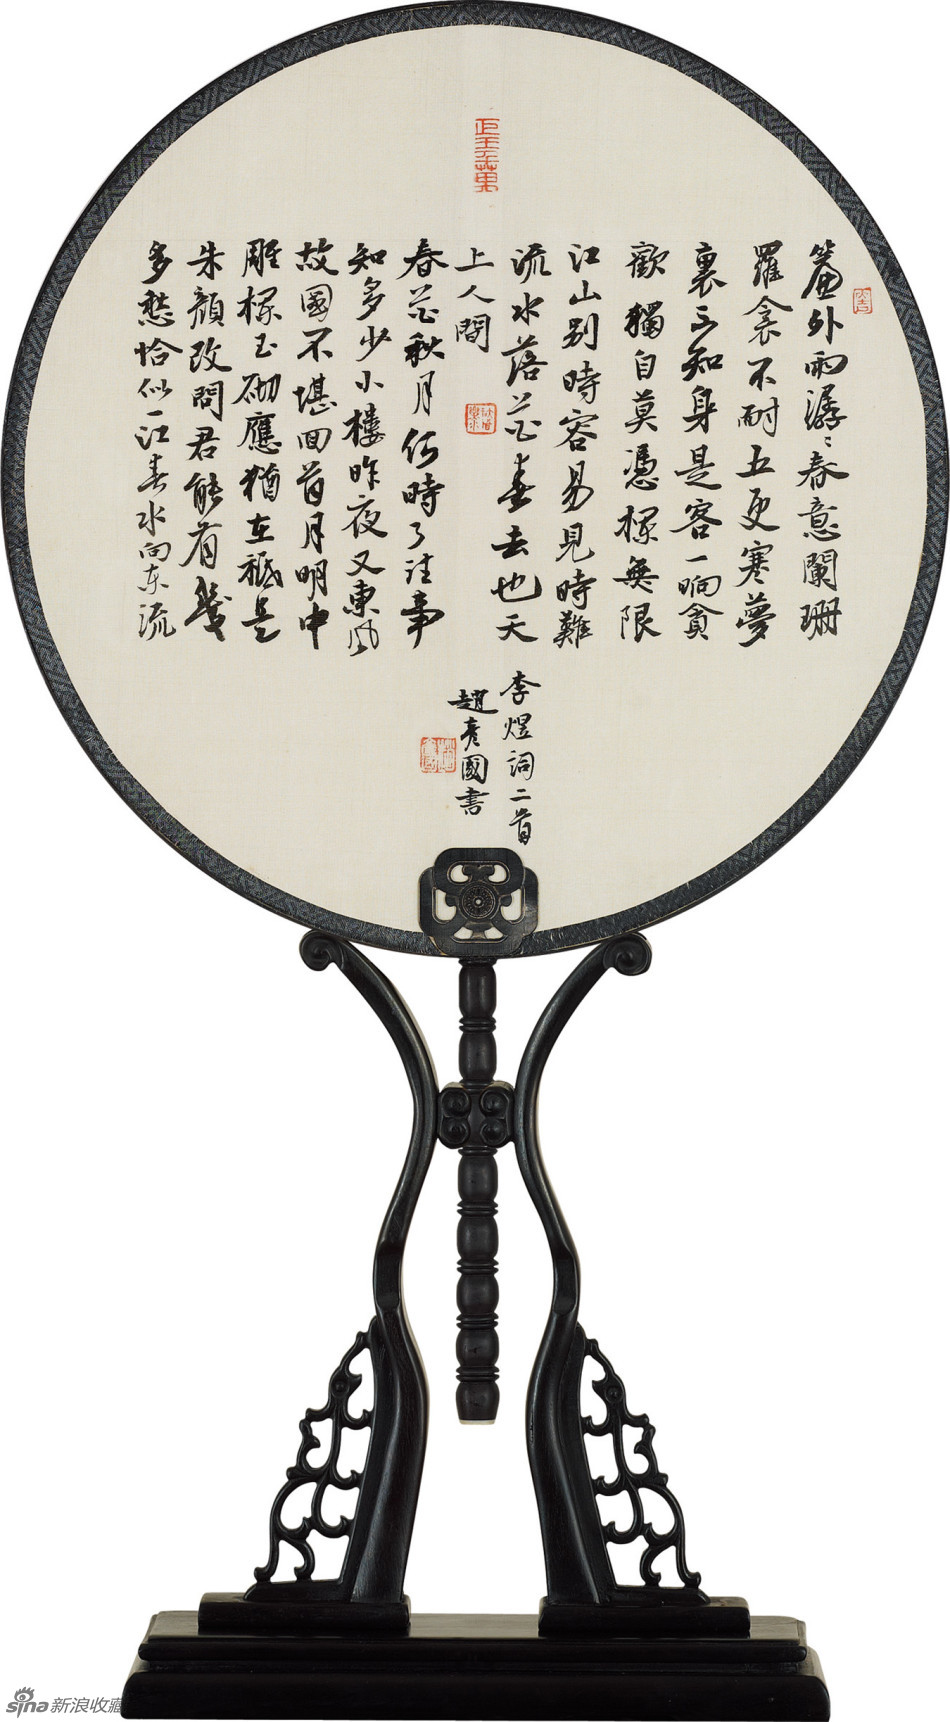 簾外雨潺〻春意闌珊
羅衾不耐五更寒夢
裏不知身是客一晌貪
歡獨自莫憑欄無限
江山別時容易見時難
流水落花春去也天
上人間
春花秋月何時了往事
知多少小樓昨夜又東風
故國不堪回首月明中
雕欄玉砌應猶在祗是
朱顏改問君能有幾
多愁恰似一江春水向东流
李煜詞二首
趙彥國書
sina新浪收藏